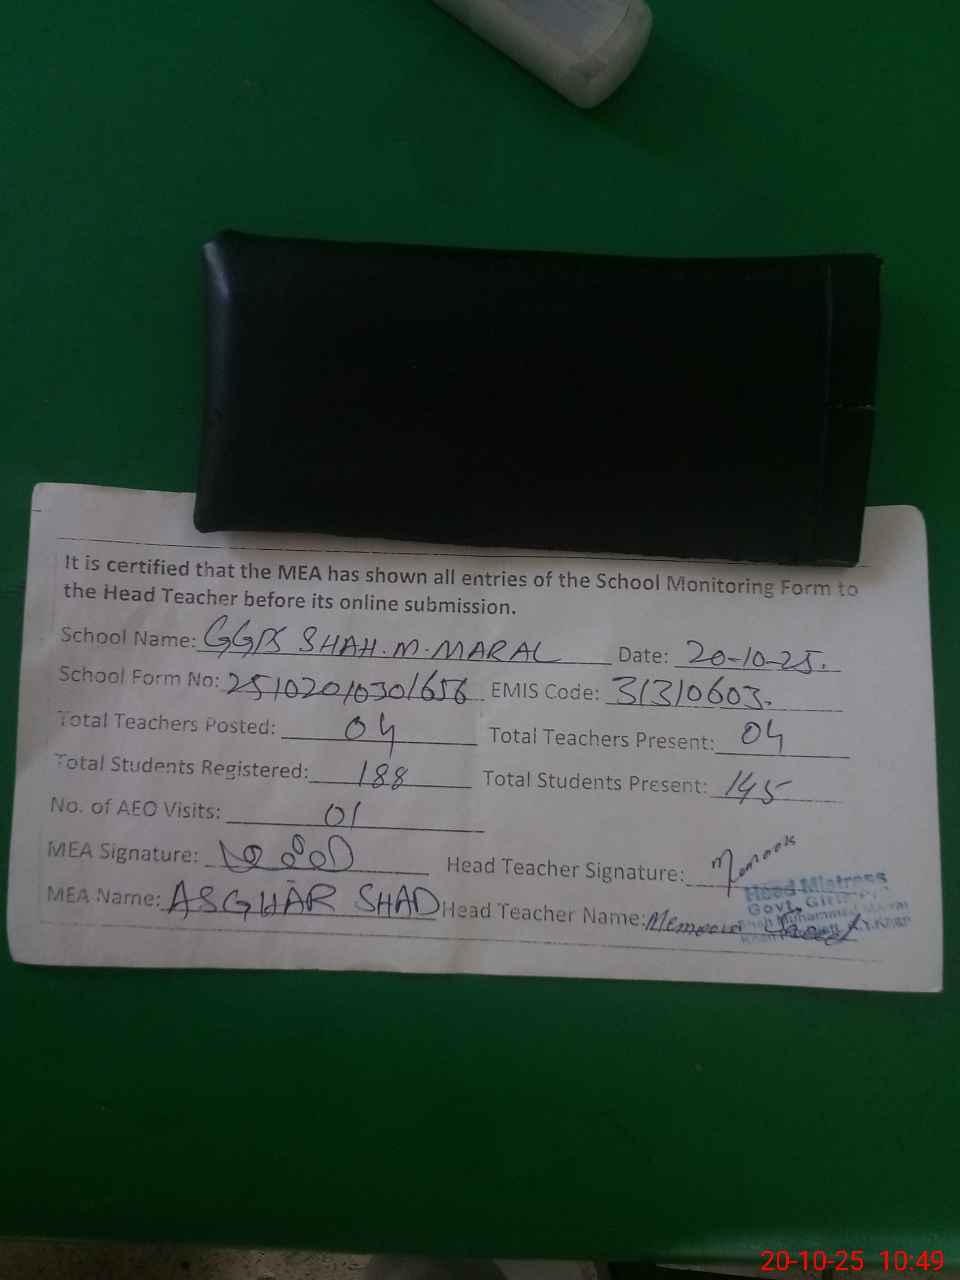 It is certified that the MEA has shown all entries of the School Monitoring Form to
the Head Teacher before its online submission.
School Name: GGPS SHAH.M.MARAL Date: 20-10-25.
School Form No: 25102010301656 EMIS Code: 31310603.
Total Teachers Posted: 04 Total Teachers Present: 04
Total Students Registered: 188 Total Students Present: 145
No. of AEO Visits: 01
MEA Signature: Head Teacher Signature:
MEA Name: ASGHAR SHAD Head Teacher Name:
Head Mistress
Govt. Girls
20-10-25 10:49